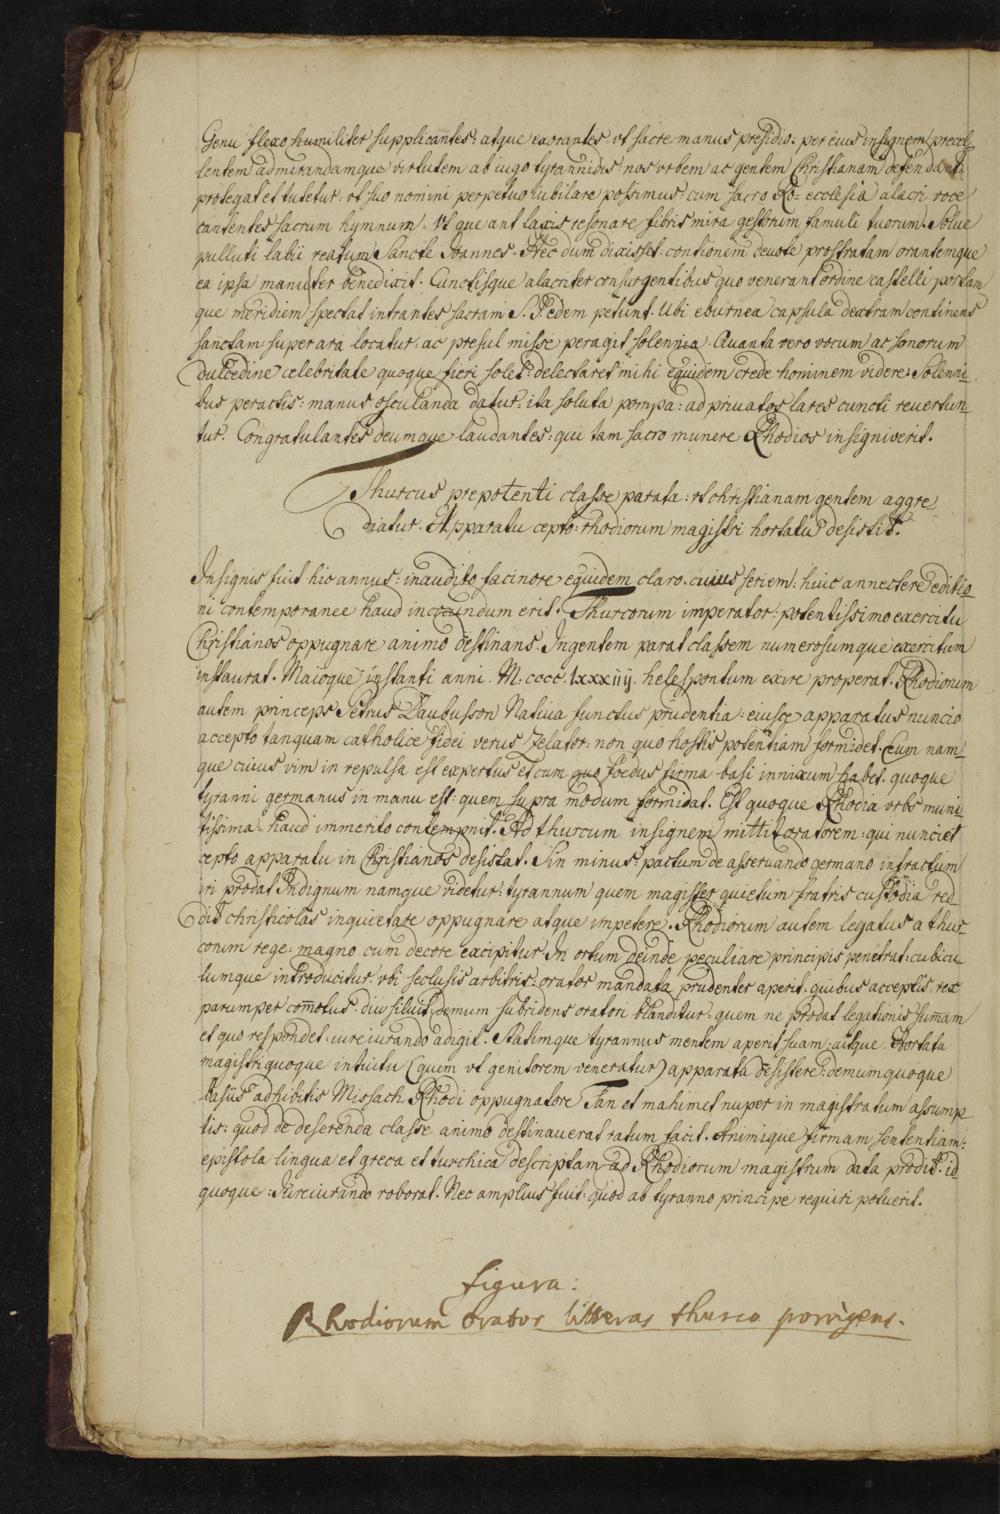 Genu flexo humiliter supplicantes: atque exorantes vt sacre manus presidio: per eius insignem precel-
lentem admirandamque virtutem ab iugo tyrannidis nos vrbem ac gentem Christianam defendat:
protegat et tutetur: vt suo nomini perpetuo iubilare possimus: cum sacro Ro: ecclesia alacri voce
cantentes sacrum hymnum. Vt que ant laxis resonare fibris mira gestorum famuli tuorum. Solue
pulluti labii reatum Sancte Joannes. Hec dum dixisset contionem deuote prostratam orantemque
ea ipsa manu ter benedixit. Cunctisque alacriter consurgentibus quo venerant ordine castelli portam
que meridiem spectat intrantes sacram S. Edem petunt. Ubi eburnea capsula dextram continens
sanctam super ara locatur: ac presul misse peragit solennia. Quanta vero vocum ac sonorum
dulcedine celebritate quoque fieri solet: delectaret mihi equidem crede hominem videre. Solenni-
bus peractis: manus osculanda datur: ita soluta pompa: ad priuatos lares cuncti reuertun-
tur. Congratulantes deumque laudantes: qui tam sacro munere Rhodios insigniverit.
Thurcus prepotenti classe parata: vt christianam gentem aggre-
diatur. Apparatu cepto: rhodiorum magistri hortatu desistit.
Insignis fuit hic annus: inaudito facinore equidem claro. cuius seriem: huic annectere editio-
ni contemporanee haud incocundum erit. Thurcorum imperator: potentissimo exercitu
Christianos oppugnare animo destinans. Ingentem parat classem numerosumque exercitum
instaurat. Maioque instanti anni. M. cccc. lxxxiiij. helespontum exire properat. Rhodiorum
autem princeps Petrus Daubusson Natiua functus prudentia: eiusce apparatus nuncio
accepto tanquam catholice fidei verus zelator: non quo hostis potentiam formidet. Cum nam-
que cuius vim in repulsa est expertus et cum quo foedus firma basi innixum habet. quoque
tyranni germanus in manu est: quem supra modum formidat. Est quoque Rhodia vrbs muni-
tissima: haud immerito contempnit. Ad thurcum insignem mittit oratorem: qui nunciet
cepto apparatu in Christianos desistat. Sin minus pactum de asseruando germano infractum
iri prodat Indignum namque videtur: tyrannum quem magister quietum fratris custodia red-
dit christicolas inquietare oppugnare atque impetere. Rhodiorum autem legatus a thur-
corum rege: magno cum decore excipitur. In ortum deinde peculiare principis penetrat: cubicu-
lumque introducitur. vbi seclusis arbitris: orator mandata prudenter aperit. quibus acceptis. rex
parumper com̄otus: diu siluit: demum subridens oratori blanditur: quem ne prodat legationis sum̄am
et quo respondet: iureiurando adigit. Statimque tyrannus mentem aperit suam: aitque. Hortatu
magistri quoque intuitu (quem vt genitorem veneratur) apparatu desistere: demumquoque
basiis adhibitis Missach Rhodi oppugnatore Tan et mahimet nuper in magistratum assump-
tis: quod de deserenda classe animo destinauerat ratum facit. Animique firmam sententiam:
epistola lingua et greca et turchica descriptam ad Rhodiorum magistrum data prodit. id
quoque: Jureiurando roborat. Nec amplius fuit: quod ab tyranno principe requiri potuerit.
figura:
Rhodiorum orator litteras thurco porrigens.